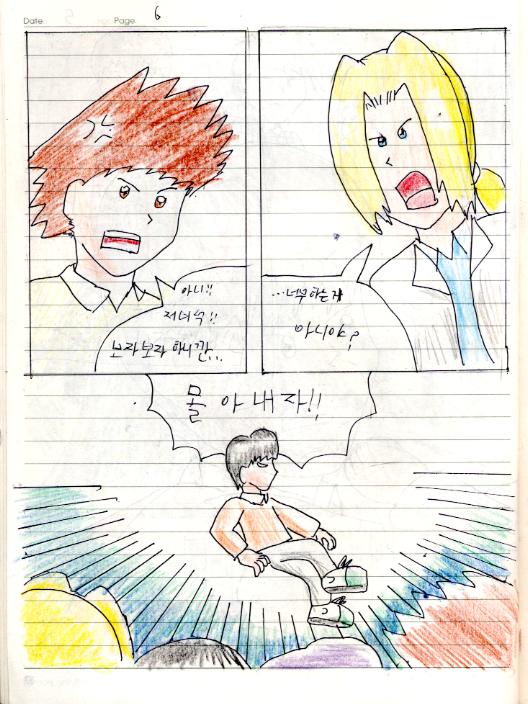 Date
Page
6
아니!!
저녀석!!
보자보자 하니깐..
...너무하는거
아니야?
몰아내자!!